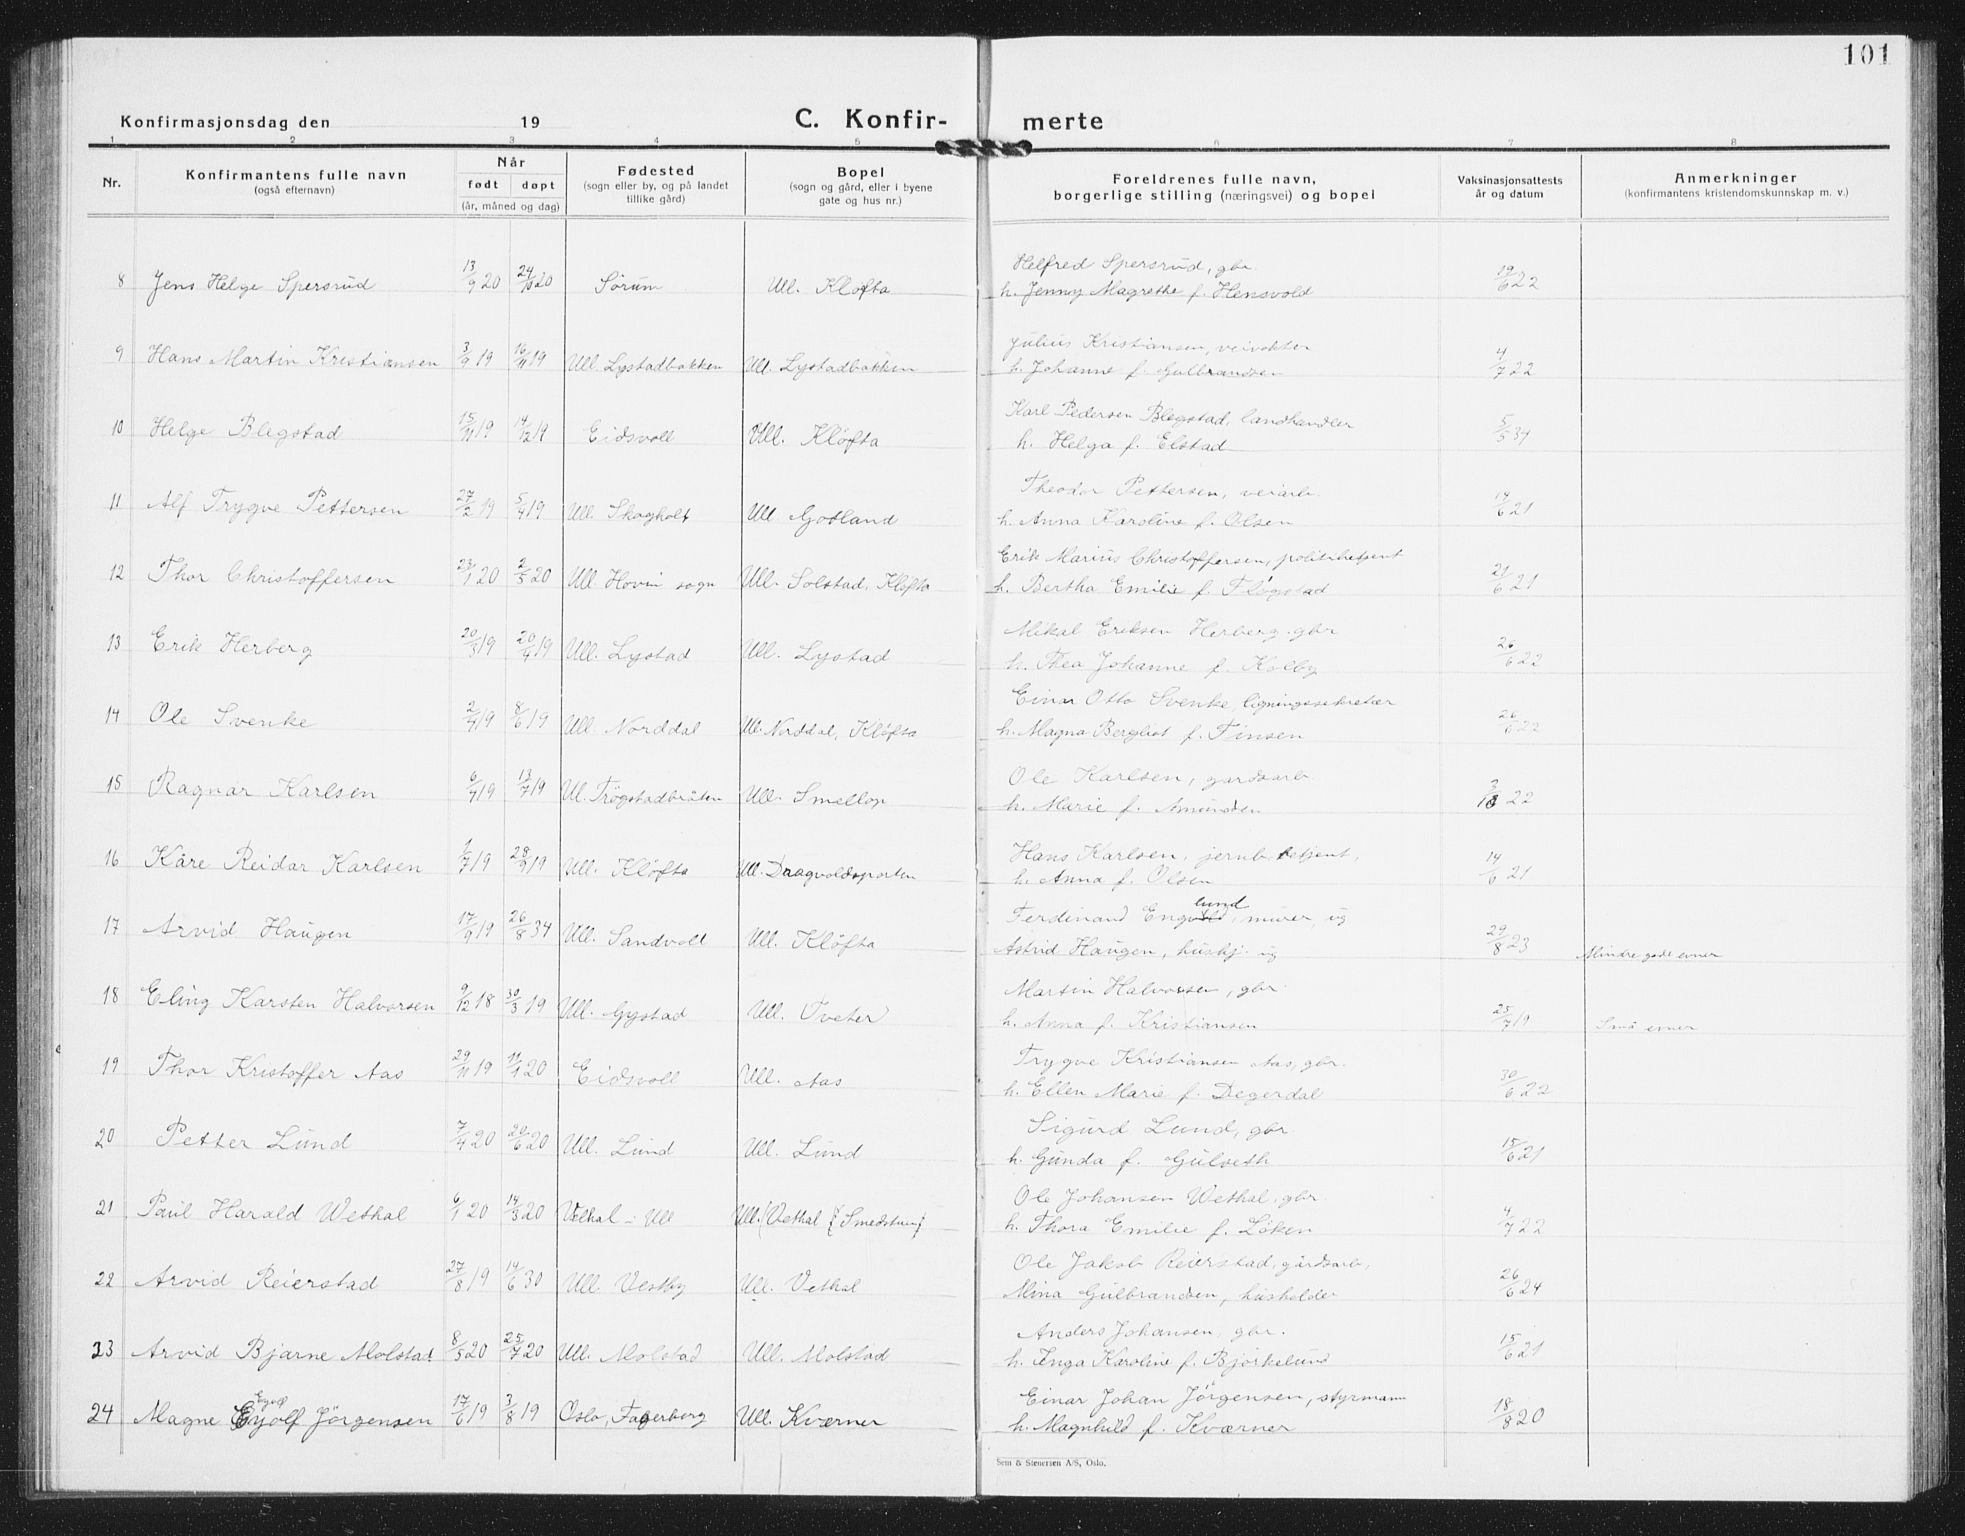 101
Konfirmasjonsdag den 19
C. Konfir- merte
1 2 3 4 5 6 7 8
Nr. Konfirmantens fulle navn (også efternavn) Når født døpt (år, måned og dag) Fødested (sogn eller by, og på landet tillike gård) Bopel (sogn og gård, eller i byene gate og hus nr.) Foreldrenes fulle navn, borgerlige stilling (næringsvei) og bopel Vaksinasjonsattests år og datum Anmerkninger (konfirmantens kristendomskunnskap m. v.)
Helfred Spersrud, gbr.
8 Jens Helge Spersrud 13/9 20 24/10 20 Sørum Ull. Kløfta h. Jenny Magrethe f. Hensvold 19/6 22
Julius Kristiansen, veivokter
9 Hans Martin Kristiansen 3/9 19 16/11 19 Ull. Lystadbakken Ull. Lystadbakken h. Johanne f. Gulbrandsen 4/7 22
Karl Pedersen Blegstad, landhandler
10 Helge Blegstad 15/11 19 14/12 19 Eidsvoll Ull. Kløfta h. Helga f. Elstad 5/5 34
Theodor Pettersen, veiarb.
11 Alf Trygve Pettersen 27/2 19 5/4 19 Ull. Skogholt Ull Gotland h. Anna Karoline f. Olsen 14/6 21
Erik Marius Christoffersen, politibetjent
12 Thor Christoffersen 23/1 20 2/5 20 Ull. Hovin sogn Ull. Solstad, Kløfta h. Bertha Emilie f. Fløgstad 21/6 21
Mikal Eriksen Herberg gbr
13 Erik Herberg 20/3 19 20/4 19 Ull. Lystad Ull. Lystad h. Thea Johanne f. Kolby 26/6 22
Einar Otto Svenke, ligningssekretær
14 Ole Svenke 2/4 19 8/6 19 Ull. Norddal Ull. Norddal, Kløfta h. Magna Bergliot f. Finsen 26/6 22
Ole Karlsen, gardsarb
15 Ragnar Karlsen 6/4 19 13/7 19 Ul. Trøgstadbråten Ull. Smellop h. Marie f. Amundsen 3/10 22
Hans Karlsen, jernb. betjent,
16 Kåre Reidar Karlsen 1/7 19 28/9 19 Ull. Kløfta Ull. Dragvoldsporten h. Anna f. Olsen 14/6 21
lund
Ferdinand Engvold, murer, ug
17 Arvid Haugen 17/9 19 26/8 34 Ull. Sandvoll Ull. Kløfta Astrid Haugen, hushj. ug 29/8 23 Mindre gode evner
Martin Halvorsen, gbr.
18 Eling Karsten Halvorsen 9/12 18 30/3 19 Ull. Gystad Ull. Tveter h. Anna f. Kristiansen 25/7 19 Små evner
Trygve Kristiansen Aas, gbr.
19 Thor Kristoffer Aas 29/11 19 11/1 20 Eidsvoll Ull. Aas h. Ellen Marie f. Degerdal 30/6 22
Sigurd Lund, gbr.
20 Petter Lund 7/4 20 20/6 20 Ull. Lund Ull. Lund h. Gunda f. Gulseth 15/6 21
Ole Johansen Wethal, gbr.
21 Paul Harald Wethal 6/1 20 14/3 20 Vethal i Ull Ull. (Vethal (Smedstuen) h. Thora Emilie f. Løken 4/7 22
Ole Jakob Reierstad, gårdsarb,
22 Arvid Reierstad 27/8 19 14/6 30 Ull. Vestby Ull. Vethal Mina Gulbrandsen, husholder 26/6 24
Anders Johansen, gbr.
23 Arvid Bjarne Molstad 8/5 20 25/7 20 Ull. Molstad Ull. Molstad h. Inga Karoline f. Bjørkelund 15/6 21
Eyolf
Einar Johan Jörgensen, styrmann
24 Magne Eyolf Jörgensen 17/6 19 3/8 19 Oslo, Fagerborg Ull. Kværner h. Magnhild f. Kværner 18/8 20
Sem & Stenersen A/S, Oslo.